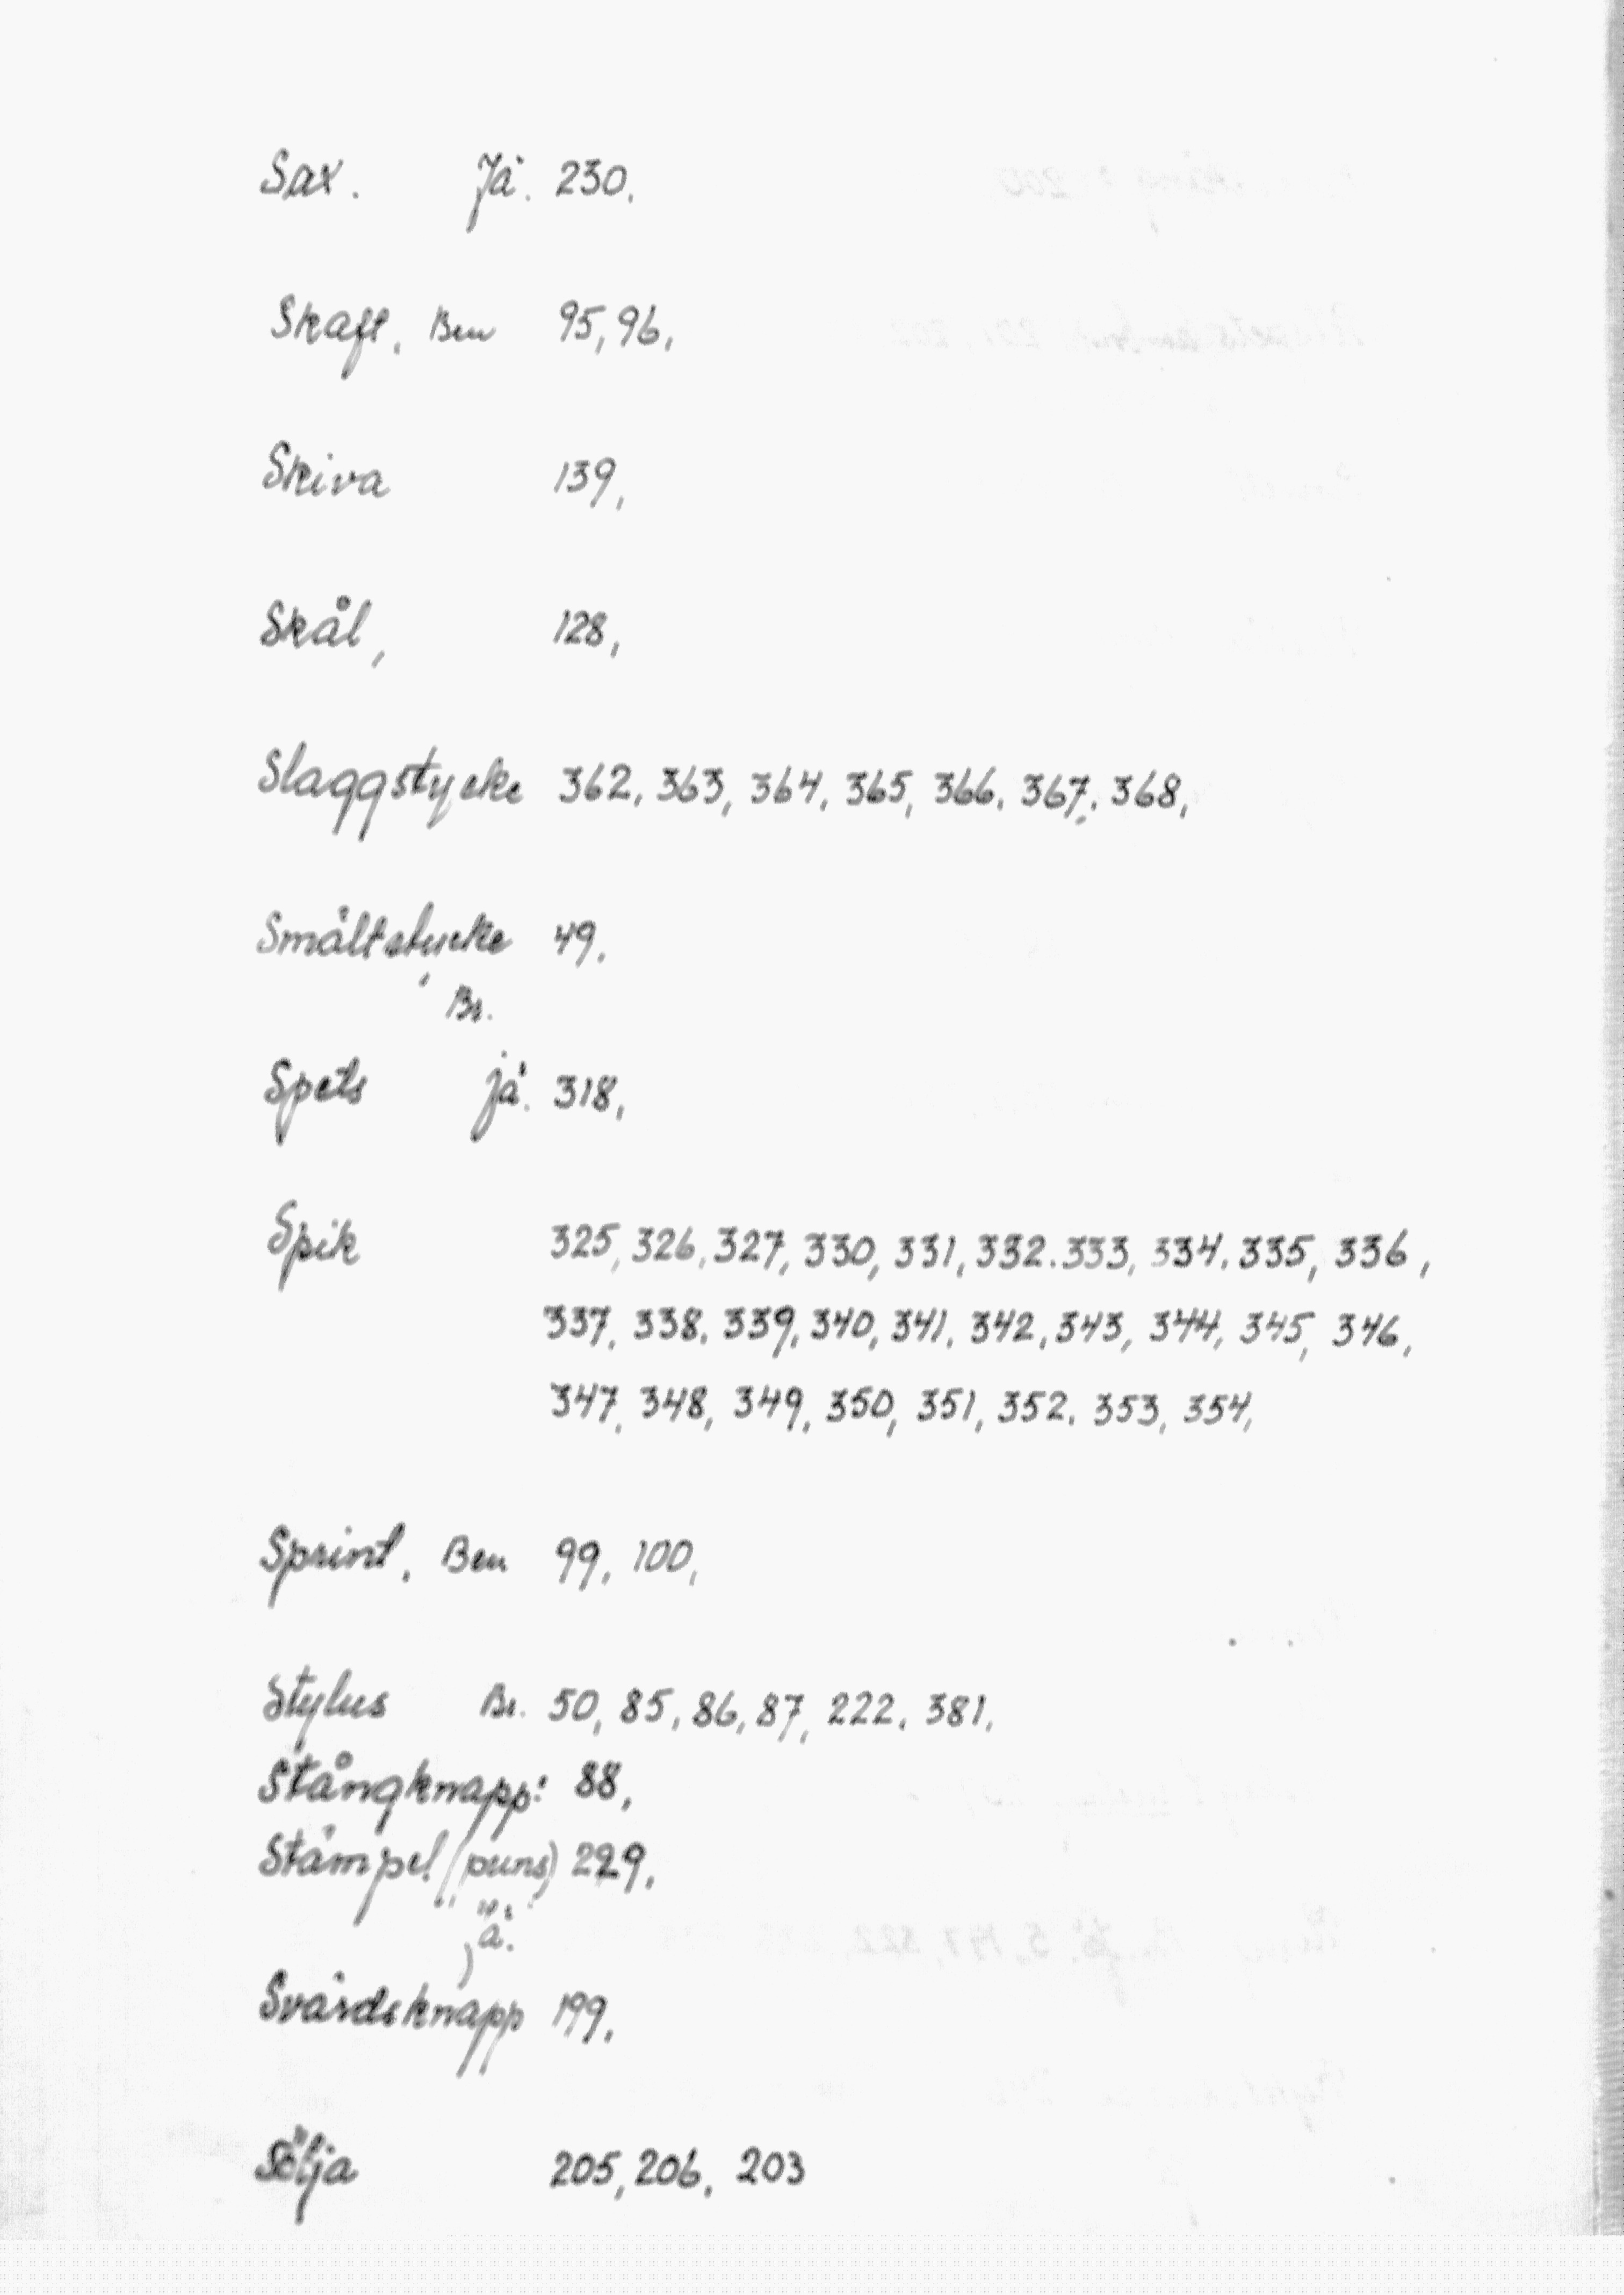 Sax. Jä. 230.
Skaft. Ben 95, 96,
Skiva 139,
Skål, 128,
Slaggstycke 362, 363, 364, 365, 366, 367, 368,
Smältstycke 49.
Br.
Spets jä. 318,
Spik 325, 326, 327, 330, 331, 332. 333, 334. 335, 336,
337, 338, 339, 340, 341, 342, 343, 344, 345, 346,
347, 348, 349, 350, 351, 352, 353, 354,
Sprint, Ben 99, 100,
Stylus Br. 50, 85, 86, 87, 222, 381,
Stångknapp: 88,
Stämpel (puns) 229.
Svärdsknapp 199,
Sölja 205, 206, 203